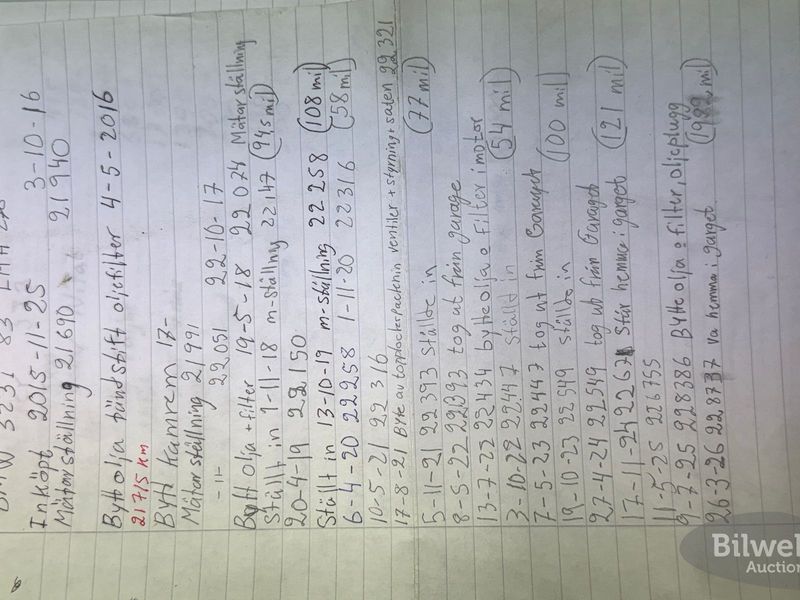 BMW 323i 83
Inköpt 2015-11-25 3-10-16
Mätarställning 21690 21940
Bytt olja tändstift oljefilter 4-5-2016
21715 km
Bytt Kamrem 17-
Mätarställning 21991
-11- 22051 22-10-17
Bytt olja + filter 19-5-18 22074 Mätarställning
Ställt in 1-11-18 m-ställning 22147 (94,5 mil)
20-4-19 22150
Ställt in 13-10-19 m-ställning 22258 (108 mil)
6-4-20 22258 1-11-20 22316 (58 mil)
10-5-21 22316
17-8-21 Byte av topplockspackning ventiler + styrning + säten 22321
5-11-21 22393 Ställde in (77 mil)
8-5-22 22393 tog ut från garage
13-7-22 22434 bytte olja o filter i motor
3-10-22 22447 ställt in (54 mil)
7-5-23 22447 tog ut från Garaget
19-10-23 22549 ställde in (100 mil)
27-4-24 22549 tog ut från Garaget
17-11-24 22671 Står hemma i garget (121 mil)
11-5-25 226755
9-7-25 228386 Bytte olja o filter, oljeplugg
26-3-26 228737 va hemma i garget (198,2 mil)
Bilweb
Auctions